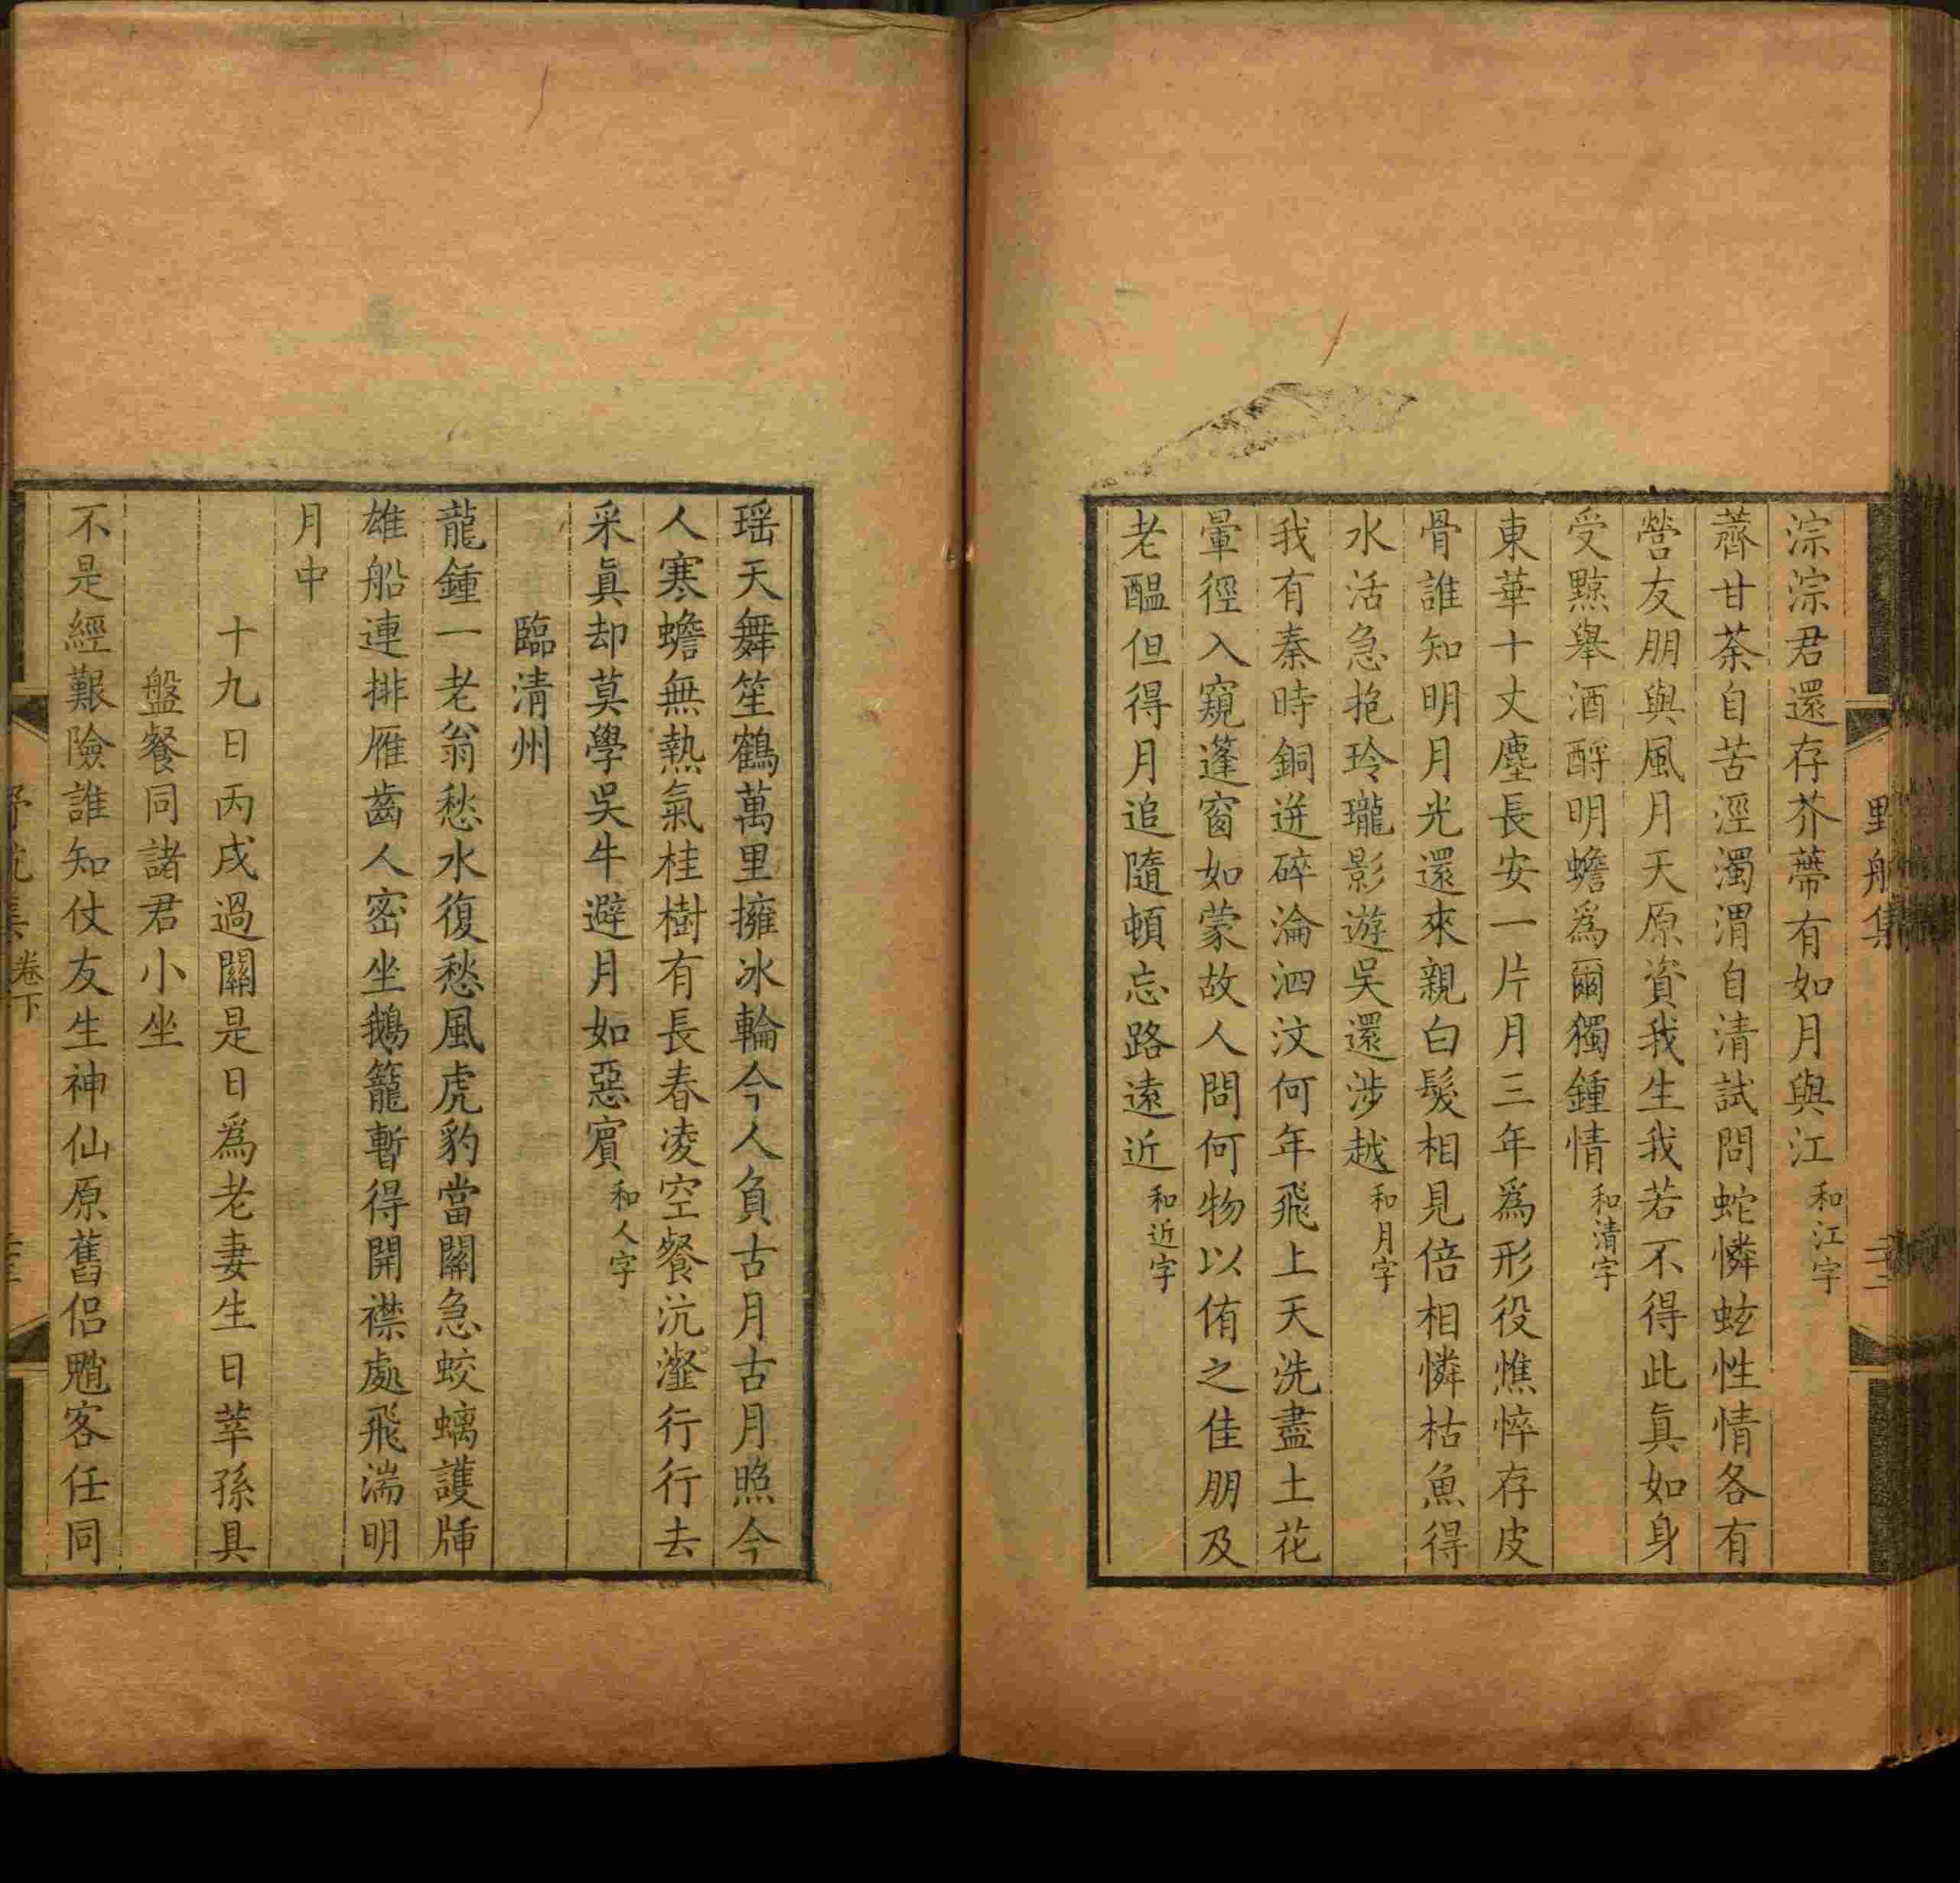 淙淙君還存芥蔕有如月與江和江字
薺甘荼自苦涇濁渭自清試問蛇憐蚿性情各有
營友朋與風月天原資我生我若不得此眞如身
受黥舉酒酹明蟾爲爾獨鍾情和清字
東華十丈塵長安一片月三年爲形役憔悴存皮
骨誰知明月光還來親白髮相見倍相憐枯魚得
水活急抱玲瓏影遊吳還涉越和月字
我有秦時銅迸碎淪泗汶何年飛上天洗盡土花
暈徑入窺蓬窗如蒙故人問何物以侑之佳朋及
老醖但得月追隨頓忘路遠近和近字
瑶天舞笙鶴萬里擁冰輪今人負古月古月照今
人寒蟾無熱氣桂樹有長春凌空餐沆瀣行行去
采眞却莫學吳牛避月如惡賓和人字
臨清州
龍鍾一老翁愁水復愁風虎豹當關急蛟螭護牐
雄船連排雁齒人密坐鵝籠暫得開襟處飛湍明
月中
十九日丙戌過關是日爲老妻生日莘孫具
盤餐同諸君小坐
不是經艱險誰知仗友生神仙原舊侶魁客任同
卷下